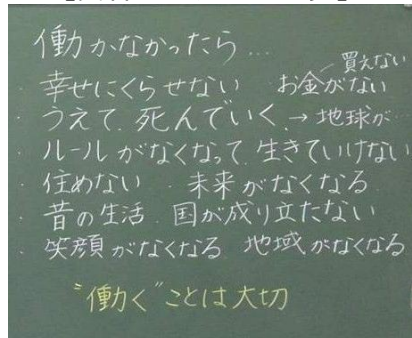 働かなかったら…
買えない
・幸せにくらせない お金がない
・うえて、死んでいく→地球が…
・ルールがなくなって生きていけない
・住めない ・未来がなくなる
・昔の生活 国が成り立たない
・笑顔がなくなる 地域がなくなる
"働く"ことは大切